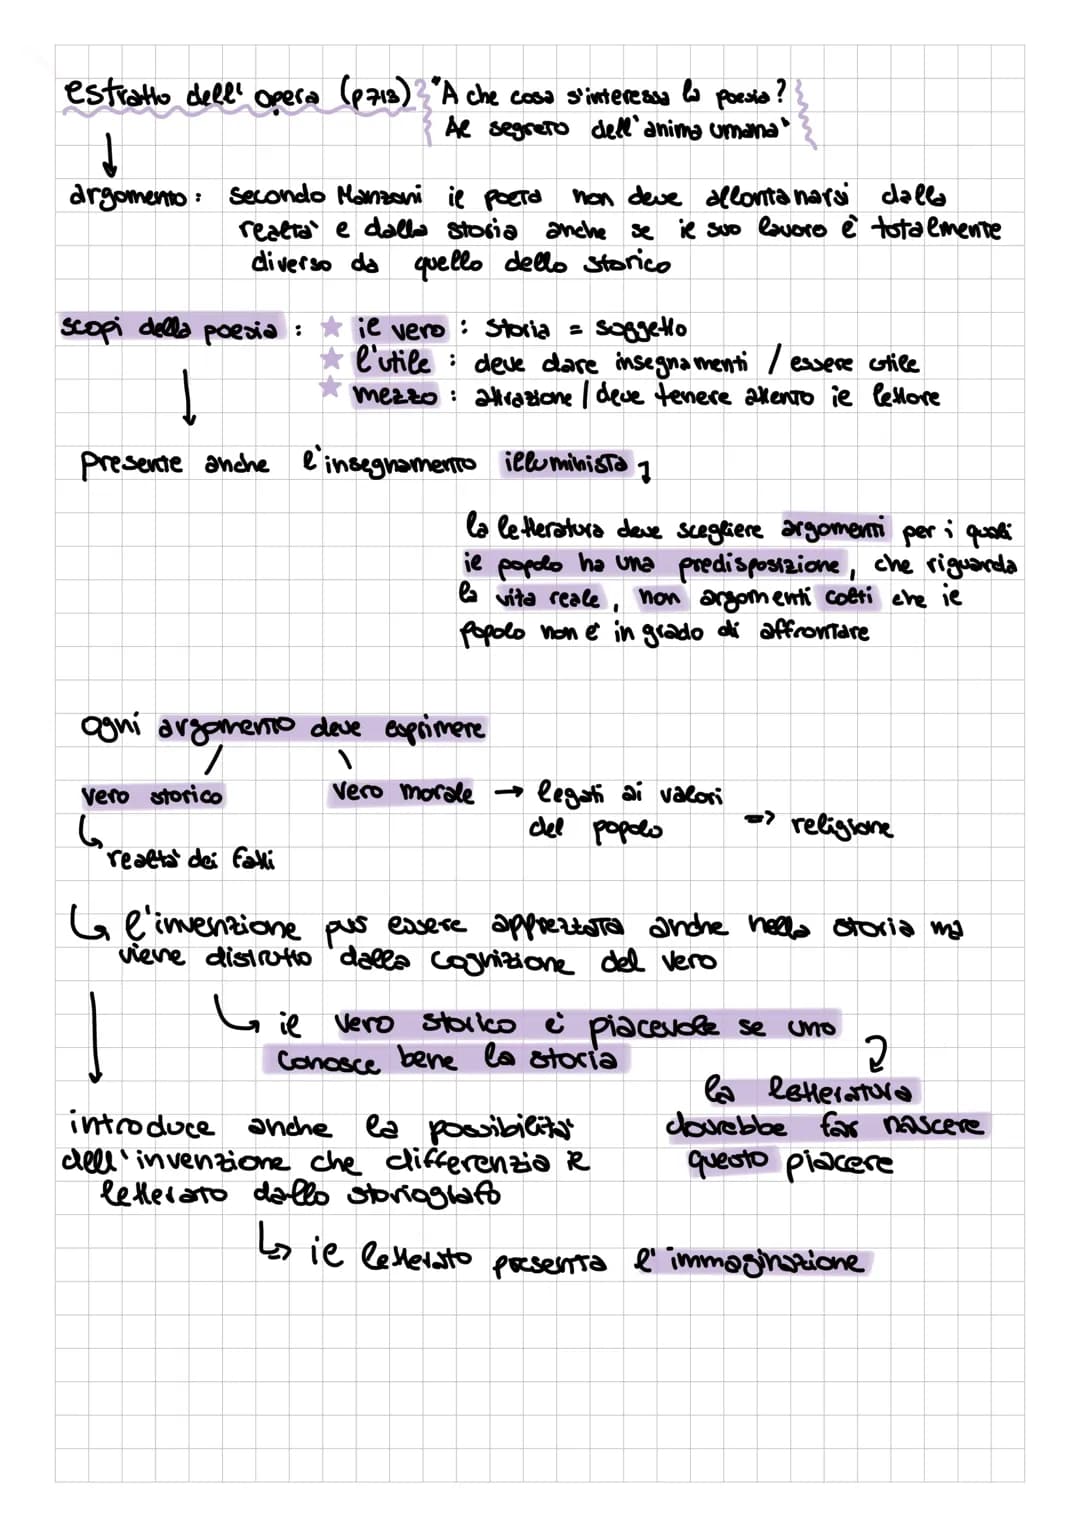 estratto dell' opera (p713) "A che cosa s'interessa la poesia?
Al segreto dell'anima umana"
argomento: secondo Manzoni il poeta non deve allontanarsi dalla
realtà e dalla storia anche se il suo lavoro è totalmente
diverso da quello dello storico
scopi della poesia : il vero : storia = soggetto
l'utile : deve dare insegnamenti / essere utile
mezzo : attrazione / deve tenere attento il lettore
presente anche l'insegnamento illuminista
la letteratura deve scegliere argomenti per i quali
il popolo ha una predisposizione, che riguarda
la vita reale, non argomenti colti che il
popolo non è in grado di affrontare
ogni argomento deve esprimere
vero storico vero morale → legati ai valori
del popolo => religione
realtà dei fatti
l'invenzione può essere apprezzata anche nella storia ma
viene distrutto dalla cognizione del vero
il vero storico è piacevole se uno
conosce bene la storia
la letteratura
dovrebbe far nascere
questo piacere
introduce anche la possibilità
dell'invenzione che differenzia il
letterato dallo storiografo
il letterato presenta l'immaginazione